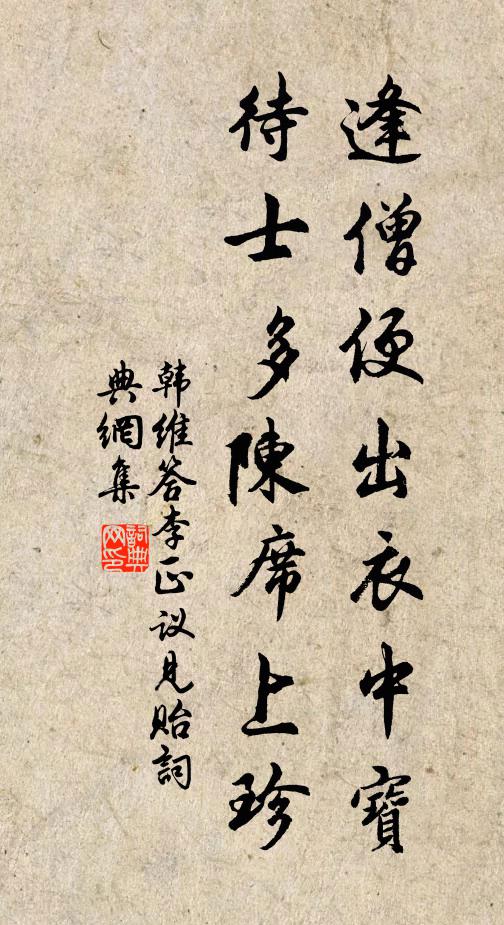 逢僧便出衣中寶
待士多陳席上珍
韩維答李正议見贻詞
典網集
詞典
网印